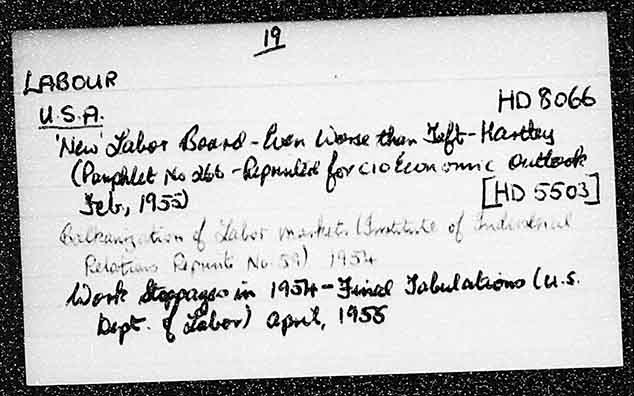 19
LABOUR
U.S.A.
HD 8066
'New' Labor Board - Even Worse than Taft-Hartley
(Pamphlet No 266 - Reprinted for CIO Economic Outlook
Feb, 1955)
[HD 5503]
Balkanization of Labor Markets (Institute of Industrial
Relations Reprints No. 59) 1954
Work Stoppages in 1954 - Final Tabulations (U.S.
Dept. of Labor) April, 1955